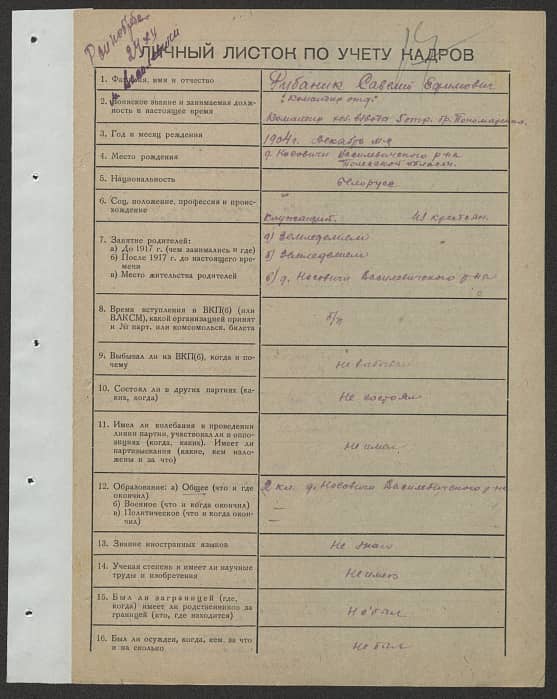 24 XII
г. Василевичи
ЛИЧНЫЙ ЛИСТОК ПО УЧЕТУ КАДРОВ
1. Фамилия, имя и отчество
Рубаник Савелий Ефимович
2. Воинское звание и занимаемая долж-
ность в настоящее время
"Командир отд."
Командир взвода отр. Пономаренко.
3. Год и месяц рождения
1904 г. Декабрь м-ц
4. Место рождения
д. Носовичи Василевичского р-на
Полесской области.
5. Национальность
белорус
6. Соц. положение, профессия и проис-
хождение
Служащий. из крестьян.
7. Занятие родителей:
а) До 1917 г. (чем занимались и где)
б) После 1917 г. до настоящего вре-
мени
в) Место жительства родителей
а) Земледелием
б) Земледелием
в) д. Носовичи Василевичского р-на
8. Время вступления в ВКП(б) (или
ВЛКСМ), какой организацией принят
и № парт. или комсомольск. билета
б/п
9. Выбывал ли из ВКП(б), когда и по-
чему
Не выбывал
10. Состоял ли в других партиях (ка-
ких, когда)
Не состоял
11. Имел ли колебания в проведении
линии партии, участвовал ли в оппо-
зициях (когда, каких). Имеет ли
партвзыскания (какие, кем нало-
жены и за что)
Не имел
12. Образование: а) Общее (что и где
окончил)
б) Военное (что и когда окончил)
в) Политическое (что и когда окон-
чил)
2 кл. д. Носовичи Василевичского р-на
—
—
13. Знание иностранных языков
Не знаю
14. Ученая степень и имеет ли научные
труды и изобретения
Не имею
15. Был ли заграницей (где,
когда) имеет ли родственников за
границей (кто, где находится)
Не был
16. Был ли осужден, когда, кем, за что
и на сколько
Не был